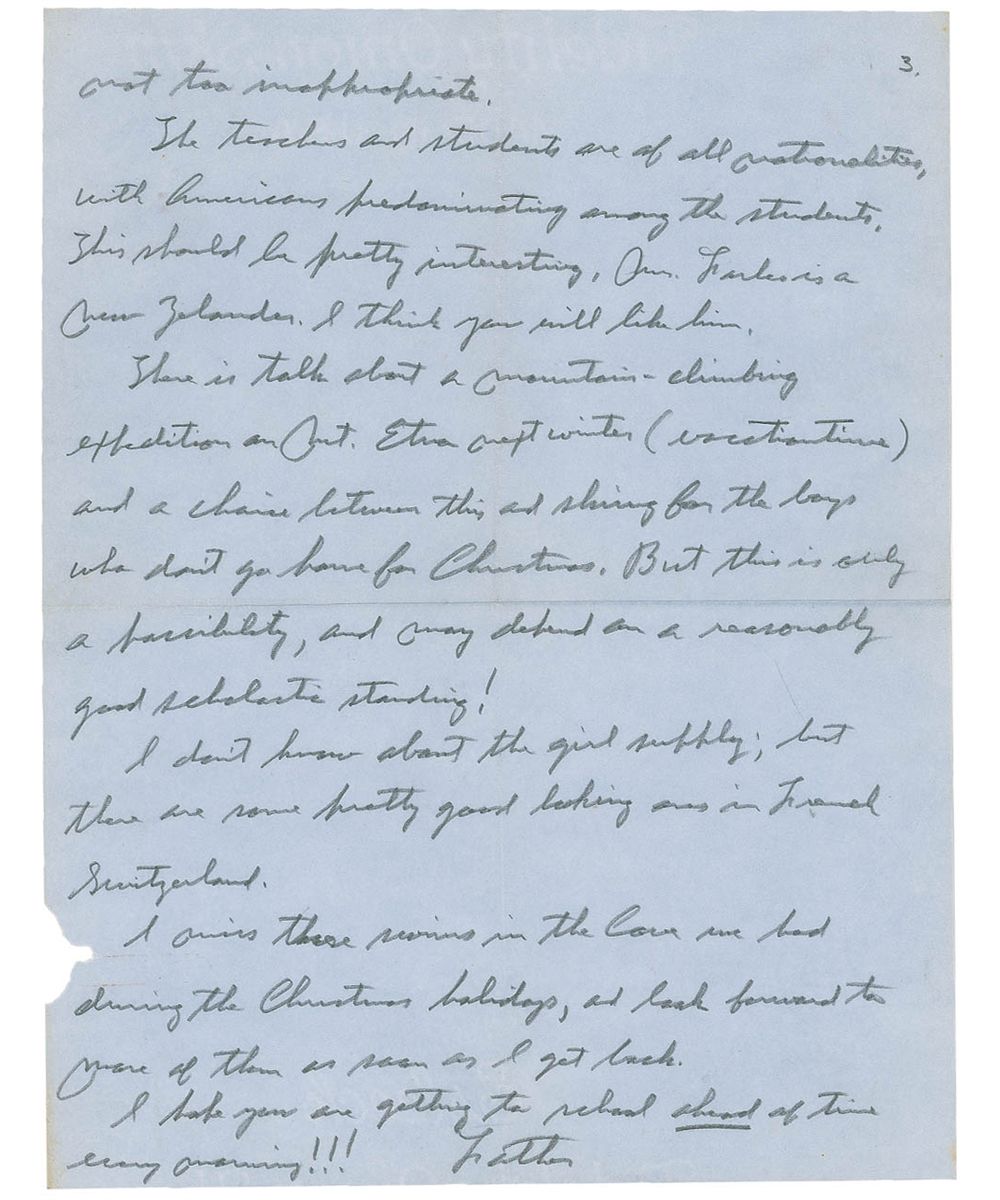 3.
not too inappropriate.
The teachers and students are of all nationalities,
with Americans predominating among the students.
This should be pretty interesting. Mr. Farkes is a
New Zelander. I think you will like him.
There is talk about a mountain-climbing
expedition on Mt. Etna next winter (vacationtime)
and a choice between this and skiing for the boys
who don't go home for Christmas. But this is only
a possibility, and may depend on a reasonably
good scholastic standing!
I don't know about the girl supply; but
there are some pretty good looking ones in French
Switzerland.
I miss those swims in the Cove we had
during the Christmas holidays, and look forward to
more of them as soon as I get back.
I hope you are getting to school ahead of time
every morning!!! Father